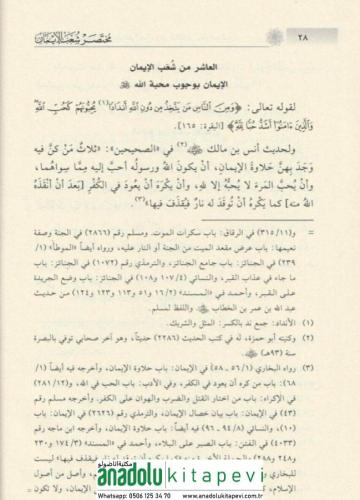 ٢٨ مختصر شعب الإيمان
العاشر من شُعَب الإيمان
الإيمان بوجوب محبة الله ﷻ
لقوله تعالى: ﴿وَمِنَ النَّاسِ مَن يَتَّخِذُ مِن دُونِ اللَّهِ أَندَادًا(١) يُحِبُّونَهُمْ كَحُبِّ اللَّهِ
وَالَّذِينَ ءَامَنُوٓا أَشَدُّ حُبًّا لِّلَّهِ﴾ [البقرة: ١٦٥].
ولحديث أنس بن مالك (٢) في «الصحيحين»: «ثلاثٌ مَنْ كنَّ فيه
وَجَدَ بِهِنَّ حَلاوةَ الإيمان، أنْ يكونَ اللهُ ورسولُه أحبَّ إليه مِمَّا سِواهُما،
وأنْ يُحبَّ المَرءَ لا يُحبُّهُ إلا لله، وأنْ يَكْرَهَ أنْ يعودَ في الكُفْرِ [بَعدَ أنْ أنْقَذَهُ
اللهُ منه] كما يَكْرَهُ أنْ تُوقَدَ له نارٌ فيُقذَفَ فيها»(٣).
= و(٣١٥/١١) في الرقاق: باب سكرات الموت. ومسلم رقم (٢٨٦٦) في الجنة وصفة
نعيمها: باب عرض مقعد الميت من الجنة أو النار عليه، ورواه أيضاً «الموطأ» (١/
٢٣٩) في الجنائز: باب جامع الجنائز، والترمذي رقم (١٠٧٢) في الجنائز: باب
ما جاء في عذاب القبر، والنسائي (١٠٧/٤ و١٠٨) في الجنائز: باب وضع الجريدة
على القبر، وأحمد في «المسند» (١٦/٢ و٥١ و١١٣ و١٢٣ و١٢٤) من حديث
عبد الله بن عمر بن الخطاب، واللفظ لمسلم.
(١) الأنداد: جمع ند بالكسر: المثل والشريك.
(٢) وكنيته أبو حمزة، له في كتب الحديث (٢٢٨٦) حديثاً، وهو آخر صحابي توفي بالبصرة
سنة (٩٣هـ).
(٣) رواه البخاري (٥٦/١ ـ ٥٨) في الإيمان: باب حلاوة الإيمان، وأخرجه فيه أيضاً (١/
٦٨): باب من كره أن يعود في الكفر، وفي الأدب: باب الحب في الله، و(٢٨١/١٢)
في الإكراه: باب من اختار القتل والضرب والهوان على الكفر. وأخرجه مسلم رقم
(٤٣) في الإيمان: باب بيان خصال الإيمان، والترمذي رقم (٢٦٢٦) في الإيمان: باب
(١٠)، والنسائي (٩٤/٨ ـ ٩٦) فيه أيضاً: باب حلاوة الإيمان، وأخرجه ابن ماجه رقم
(٤٠٣٣) في الفتن: باب الصبر على البلاء، وأحمد في «المسند» (١٧٤/٣ و٢٣٠
مكتبة الأناضولي
anadolukitapevi
Whatsapp: 0506 125 34 70 www.anadolukitapevi.com.tr